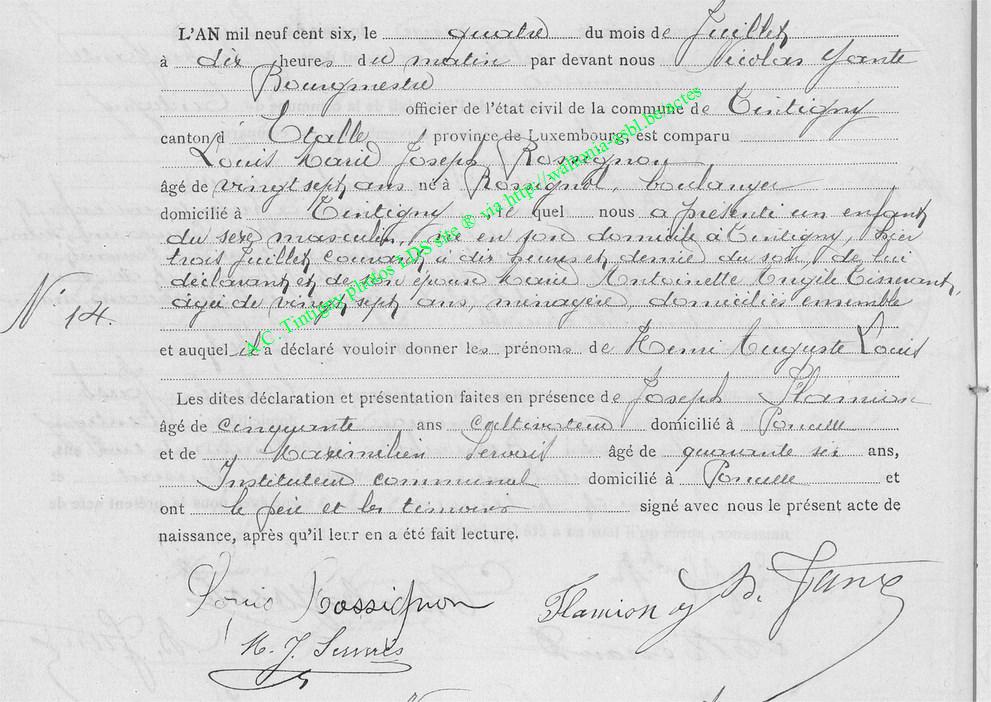 L'AN mil neuf cent six, le quatre du mois de Juillet
à dix heures du matin par devant nous Nicolas
Bourgmestre
officier de l'état civil de la commune de Tintigny
canton d' Etalle province de Luxembourg, est comparu
Louis Marie Joseph Rossignon
âgé de vingt sept ans né à Rossignol, boulanger
domicilié à Tintigny le quel nous a présenté un enfant
du sexe masculin, né en son domicile à Tintigny, hier
trois Juillet courant à dix heures et demie du soir de lui
déclarant et de son épouse Marie Antoinette Angèle Tisserant,
âgée de vingt sept ans, ménagère domiciliés ensemble
N° 14.
et auquel il a déclaré vouloir donner les prénoms de Henri Auguste Louis
Les dites déclaration et présentation faites en présence de Joseph Flamion
âgé de cinquante ans cultivateur domicilié à Poncelle
et de Maximilien Servais âgé de quarante six ans,
Instituteur communal domicilié à Poncelle et
ont le père et les témoins signé avec nous le présent acte de
naissance, après qu'il leur en a été fait lecture.
Louis Rossignon Flamion J N.
M. J. Servais
A.C. Tintigny photos LDS site ® via http://wallonia-asbl.be/actes